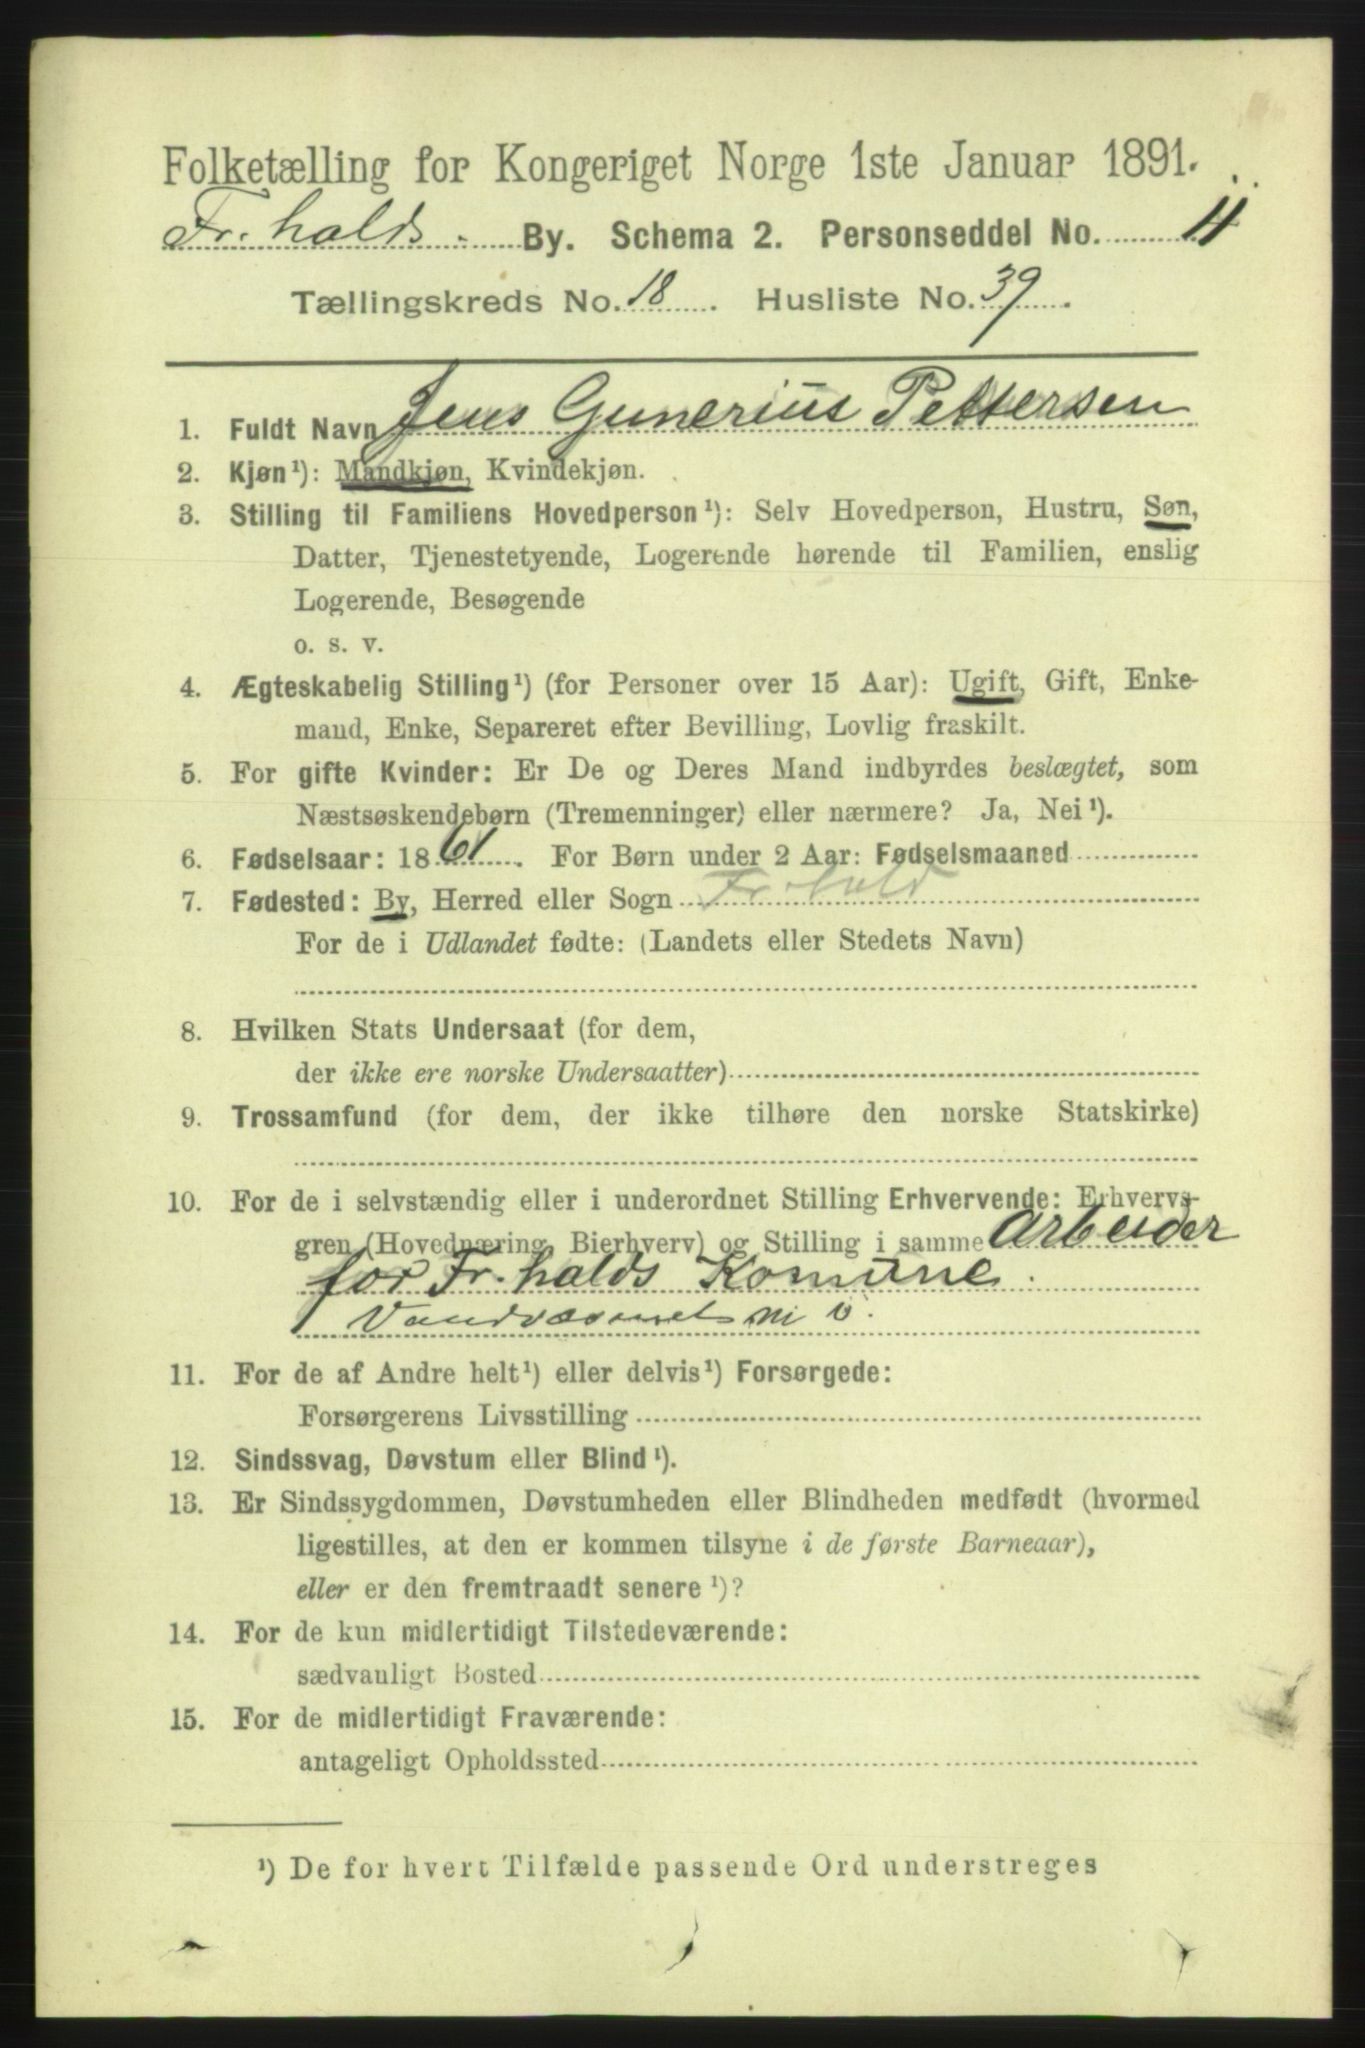 Folketælling for Kongeriget Norge 1ste Januar 1891.
Fr.halds By. Schema 2. Personseddel No. 11
Tællingskreds No. 18. Husliste No. 39.
1. Fuldt Navn Jens Gunerius Pettersen
2. Kjøn¹): Mandkjøn, Kvindekjøn.
3. Stilling til Familiens Hovedperson¹): Selv Hovedperson, Hustru, Søn,
Datter, Tjenestetyende, Logerende hørende til Familien, enslig
Logerende, Besøgende
o. s. v.
4. Ægteskabelig Stilling¹) (for Personer over 15 Aar): Ugift, Gift, Enke-
mand, Enke, Separeret efter Bevilling, Lovlig fraskilt.
5. For gifte Kvinder: Er De og Deres Mand indbyrdes beslægtet, som
Næstsøskendebørn (Tremenninger) eller nærmere? Ja, Nei¹).
6. Fødselsaar: 1861. For Børn under 2 Aar: Fødselsmaaned
7. Fødested: By, Herred eller Sogn Fr.hald
For de i Udlandet fødte: (Landets eller Stedets Navn)
8. Hvilken Stats Undersaat (for dem,
der ikke ere norske Undersaatter)
9. Trossamfund (for dem, der ikke tilhøre den norske Statskirke)
10. For de i selvstændig eller i underordnet Stilling Erhvervende: Erhvervs-
gren (Hovednæring, Bierhverv) og Stilling i samme Arbeider
for Fr.halds Komune.
11. For de af Andre helt¹) eller delvis¹) Forsørgede:
Forsørgerens Livsstilling
12. Sindssvag, Døvstum eller Blind¹).
13. Er Sindssygdommen, Døvstumheden eller Blindheden medfødt (hvormed
ligestilles, at den er kommen tilsyne i de første Barneaar),
eller er den fremtraadt senere¹)?
14. For de kun midlertidigt Tilstedeværende:
sædvanligt Bosted
15. For de midlertidigt Fraværende:
antageligt Opholdssted
¹) De for hvert Tilfælde passende Ord understreges